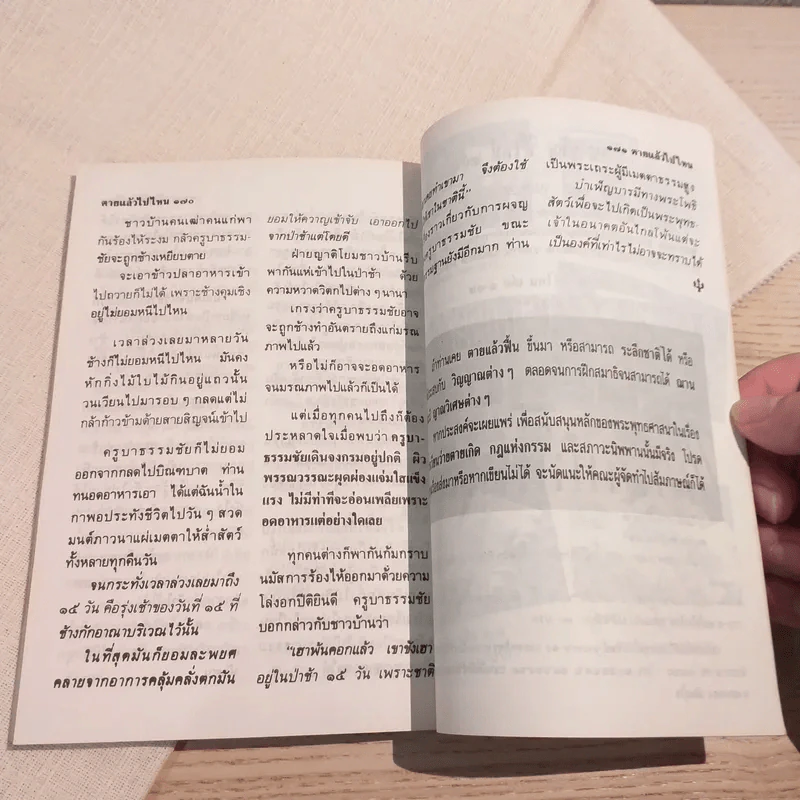 ตายแล้วไปไหน ๑๗๐
ชาวบ้านคนเฒ่าคนแก่พา
กันร้องไห้ระงม กลัวครูบาธรรม-
ชัยจะถูกช้างเหยียบตาย
จะเอาข้าวปลาอาหารเข้า
ไปถวายก็ไม่ได้ เพราะช้างคุมเชิง
อยู่ไม่ยอมหนีไปไหน
เวลาล่วงเลยมาหลายวัน
ช้างก็ไม่ยอมหนีไปไหน มันคง
หักกิ่งไม้ใบไม้กินอยู่แถวนั้น
วนเวียนไปมารอบๆ กลดแต่ไม่
กล้าก้าวข้ามด้ายสายสิญจน์เข้าไป
ครูบาธรรมชัยก็ไม่ยอม
ออกจากกลดไปบิณฑบาต ท่าน
ทนอดอาหารเอา ได้แต่ฉันน้ำใน
กาพอประทังชีวิตไปวันๆ สวด
มนต์ภาวนาแผ่เมตตาให้ส่ำสัตว์
ทั้งหลายทุกคืนวัน
จนกระทั่งเวลาล่วงเลยมาถึง
๑๕ วัน คือรุ่งเช้าของวันที่ ๑๕ ที่
ช้างกักอาณาบริเวณไว้นั้น
ในที่สุดมันก็ยอมละพยศ
คลายจากอาการคลุ้มคลั่งตกมัน
ยอมให้ควาญเข้าจับ เอาออกไป
จากป่าช้าแต่โดยดี
ฝ่ายญาติโยมชาวบ้านรีบ
พากันแห่เข้าไปในป่าช้า ด้วย
ความหวาดวิตกไปต่างๆ นานา
เกรงว่าครูบาธรรมชัยอาจ
จะถูกช้างทำอันตรายถึงแก่มรณ
ภาพไปแล้ว
หรือไม่ก็อาจจะอดอาหาร
จนมรณภาพไปแล้วก็เป็นได้
แต่เมื่อทุกคนไปถึงก็ต้อง
ประหลาดใจเมื่อพบว่า ครูบา-
ธรรมชัยเดินจงกรมอยู่ปกติ ผิว
พรรณวรรณะผุดผ่องแจ่มใสแข็ง
แรง ไม่มีท่าที่จะอ่อนเพลียเพราะ
อดอาหารแต่อย่างใดเลย
ทุกคนต่างก็พากันก้มกราบ
นมัสการร้องไห้ออกมาด้วยความ
โล่งอกปีติยินดี ครูบาธรรมชัย
บอกกล่าวกับชาวบ้านว่า
“เฮาพ้นคอกแล้ว เขาขังเฮา
อยู่ในป่าช้า ๑๕ วัน เพราะชาติ
๑๗๑ ตายแล้วไปไหน
จึงต้องใช้
ในชาตินี้”
เกี่ยวกับการผจญ
ครูบาธรรมชัย ขณะ
ยังมีอีกมาก ท่าน
เป็นพระเถระผู้มีเมตตาธรรมสูง
บำเพ็ญบารมีทางพระโพธิ
สัตว์เพื่อจะไปเกิดเป็นพระพุทธ-
เจ้าในอนาคตอันไกลโพ้นแต่จะ
เป็นองค์ที่เท่าไรไม่อาจจะทราบได้
ถ้าท่านเคย ตายแล้วฟื้น ขึ้นมา หรือสามารถ ระลึกชาติได้ หรือ
กับ วิญญาณต่างๆ ตลอดจนการฝึกสมาธิจนสามารถได้ ฌาน
ญาณวิเศษต่างๆ
หากประสงค์จะเผยแพร่ เพื่อสนับสนุนหลักของพระพุทธศาสนาในเรื่อง
ว่ายตายเกิด กฎแห่งกรรม และสภาวะนิพพานนั้นมีจริง โปรด
มาหรือหากเขียนไม่ได้ จะนัดแนะให้คณะผู้จัดทำไปสัมภาษณ์ก็ได้